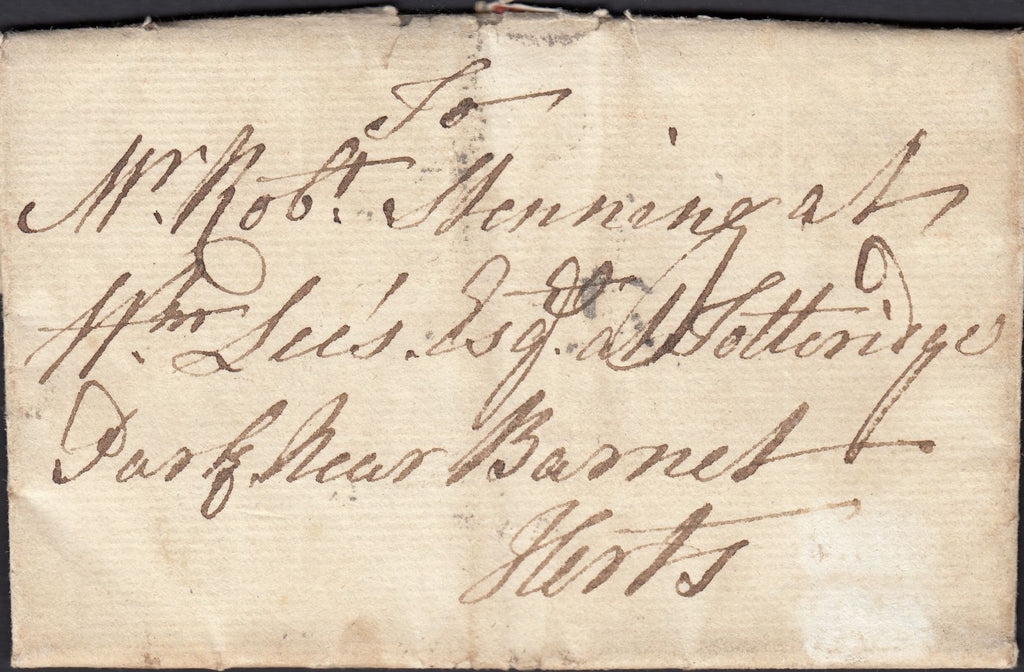 To
Mr. Robt. Stenning at
Wm. Lee's. Esqr. at Totteridge
Park Near Barnet
Herts